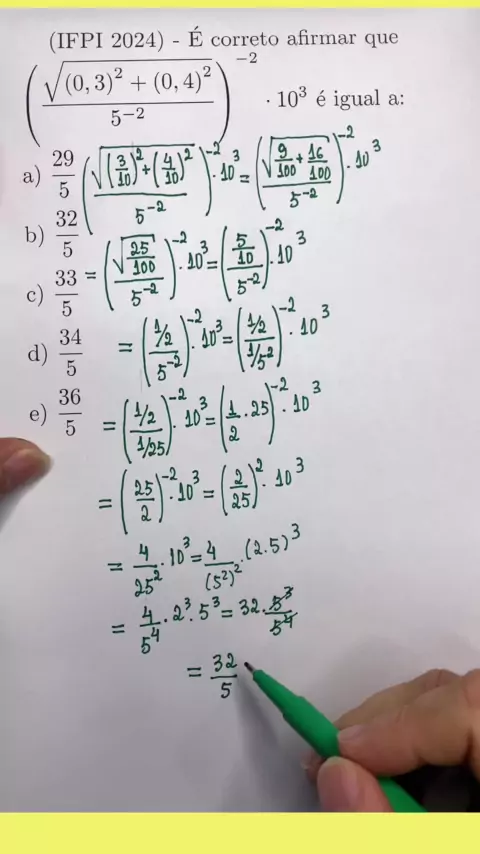 (IFPI 2024) - É correto afirmar que
(√((0,3)² + (0,4)²) / 5⁻²)⁻² · 10³ é igual a:
a) 29/5
b) 32/5
c) 33/5
d) 34/5
e) 36/5
(√((3/10)² + (4/10)²) / 5⁻²)⁻² · 10³ = (√(9/100 + 16/100) / 5⁻²)⁻² · 10³
= (√(25/100) / 5⁻²)⁻² · 10³ = ((5/10) / 5⁻²)⁻² · 10³
= ((1/2) / 5⁻²)⁻² · 10³ = ((1/2) / (1/5²))⁻² · 10³
= ((1/2) / (1/25))⁻² · 10³ = (1/2 · 25)⁻² · 10³
= (25/2)⁻² · 10³ = (2/25)² · 10³
= 4/25² · 10³ = 4/(5²)² · (2.5)³
= 4/5⁴ · 2³ · 5³ = 32 · 5³/5⁴
= 32/5